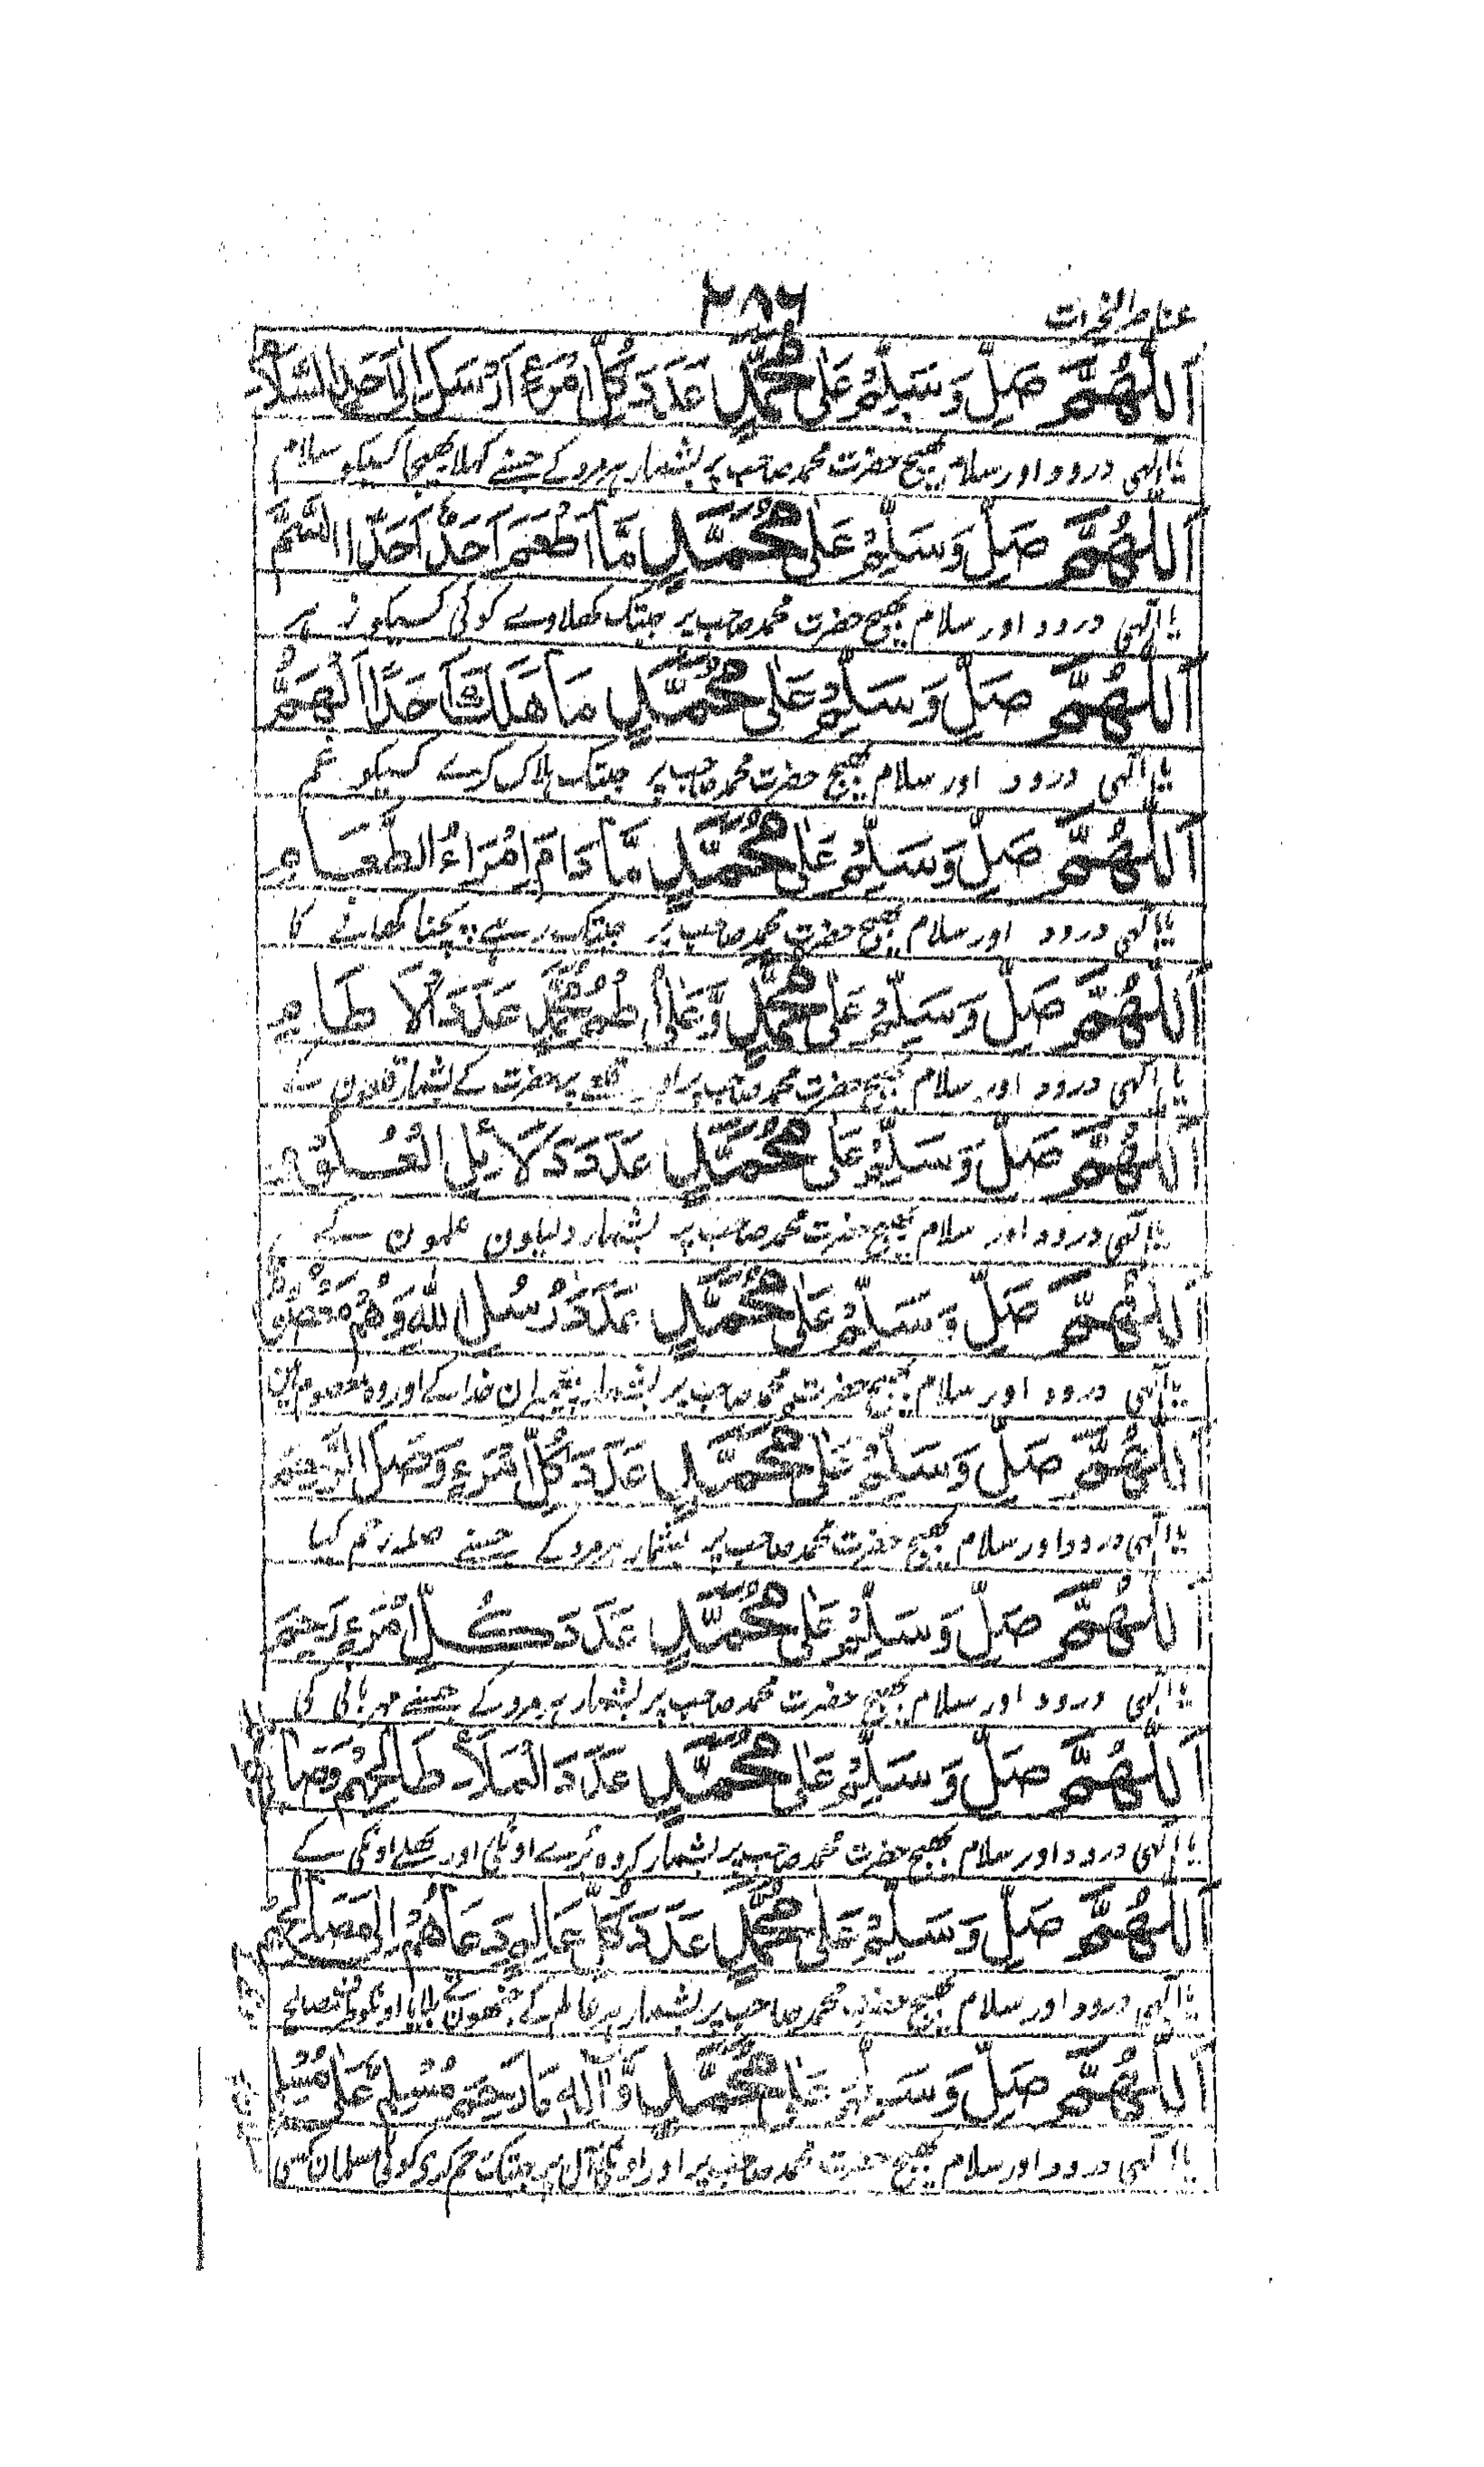 ۲۸۶
عناصر الخیرات
اَللّٰهُمَّ صَلِّ وَسَلِّمْ عَلٰى مُحَمَّدٍ عَدَدَ كُلِّ امْرَءٍ اَرْسَلَ اِلٰى اَحَدٍ السَّلَامَ
یا الٰہی درود اور سلام بھیج حضرت محمد صاحب پر بشمار ہر مرد کے جسنے کہلا بھیجا کسیکو سلام
اَللّٰهُمَّ صَلِّ وَسَلِّمْ عَلٰى مُحَمَّدٍ مَّا اَطْعَمَ اَحَدٌ اَحَدًا السَّمَّ
یا الٰہی درود اور سلام بھیج حضرت محمد صاحب پر جبتک کھلاوے کوئی کسیکو زہر
اَللّٰهُمَّ صَلِّ وَسَلِّمْ عَلٰى مُحَمَّدٍ مَا هَلَكَ اَحَدًا الْهَمُّ
یا الٰہی درود اور سلام بھیج حضرت محمد صاحب پر جبتک ہلاک کرے کسیکو غم
اَللّٰهُمَّ صَلِّ وَسَلِّمْ عَلٰى مُحَمَّدٍ مَّا دَامَ اِمْرَاءُ الطَّعَامِ
یا الٰہی درود اور سلام بھیج حضرت محمد صاحب پر جبتک رہے پچنا کھانے کا
اَللّٰهُمَّ صَلِّ وَسَلِّمْ عَلٰى مُحَمَّدٍ وَّعَلٰى اُطُمِ مُحَمَّدٍ عَدَدَ الْاٰطَامِ
یا الٰہی درود اور سلام بھیج حضرت محمد صاحب پر اور قلعے پر حضرت کے بشمار قلعون کے
اَللّٰهُمَّ صَلِّ وَسَلِّمْ عَلٰى مُحَمَّدٍ عَدَدَ دَلَائِلِ الْعُلُوْمِ
یا الٰہی درود اور سلام بھیج حضرت محمد صاحب پر بشمار دلیلون علمون کے
اَللّٰهُمَّ صَلِّ وَسَلِّمْ عَلٰى مُحَمَّدٍ عَدَدَ رُسُلِ اللّٰهِ وَهُمْ مَعْصُوْمُوْنَ
یا الٰہی درود اور سلام بھیج حضرت محمد صاحب پر بشمار پیغمبران خدا کے اور وہ معصوم ہین
اَللّٰهُمَّ صَلِّ وَسَلِّمْ عَلٰى مُحَمَّدٍ عَدَدَ كُلِّ امْرَءٍ وَصَلَ الرَّحِمَ
یا الٰہی درود اور سلام بھیج حضرت محمد صاحب پر بشمار ہر مرد کے جسنے صلہ رحم کیا
اَللّٰهُمَّ صَلِّ وَسَلِّمْ عَلٰى مُحَمَّدٍ عَدَدَ كُلِّ امْرَءٍ رَحِمَ
یا الٰہی درود اور سلام بھیج حضرت محمد صاحب پر بشمار ہر مرد کے جسنے مہربانی کی
اَللّٰهُمَّ صَلِّ وَسَلِّمْ عَلٰى مُحَمَّدٍ عَدَدَ الْمَلَأِ طَالِحِهِمْ وَصَالِحِهِمْ
یا الٰہی درود اور سلام بھیج حضرت محمد صاحب پر بشمار گروہ بُرے اونکی اور بھلے اونکی کے
اَللّٰهُمَّ صَلِّ وَسَلِّمْ عَلٰى مُحَمَّدٍ عَدَدَ كُلِّ عَالِمٍ دَعَاهُمْ اِلٰى مَصَالِحِهِمْ
یا الٰہی درود اور سلام بھیج حضرت محمد صاحب پر بشمار ہر عالم کے جنھون نے بلایا اونکو طرف مصالح
اَللّٰهُمَّ صَلِّ وَسَلِّمْ عَلٰى مُحَمَّدٍ وَّاٰلِهٖ مَا رَحِمَ مُسْلِمٌ عَلٰى مُسْلِمٍ
یا الٰہی درود اور سلام بھیج حضرت محمد صاحب پر اور اونکی آل پر جبتک رحم کری کوئی مسلمان کسی